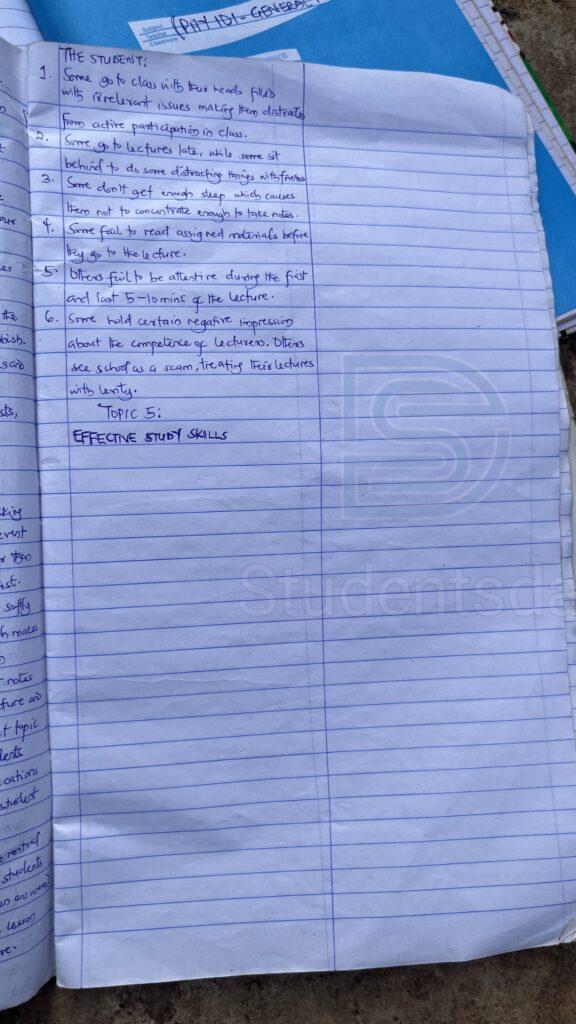 Subject
Teacher
Classroom
(PHY 101 - GENERAL
THE STUDENT:
1. Some go to class with their heads filled
with irrelevant issues making them distracted
from active participation in class.
2. Some go to lectures late, while some sit
behind to do some distracting things with friends
3. Some don't get enough sleep which causes
them not to concentrate enough to take notes.
4. Some fail to read assigned materials before
they go to the lecture.
5. Others fail to be attentive during the first
and last 5-10 mins of the lecture.
6. Some hold certain negative impression
about the competence of lecturers. Others
see school as a scam, treating their lectures
with levity.
TOPIC 5:
EFFECTIVE STUDY SKILLS
Studentsda
the
sts,
event
ast.
softly
h makes
notes
topic
dents
cations
student
students
lesson
re.